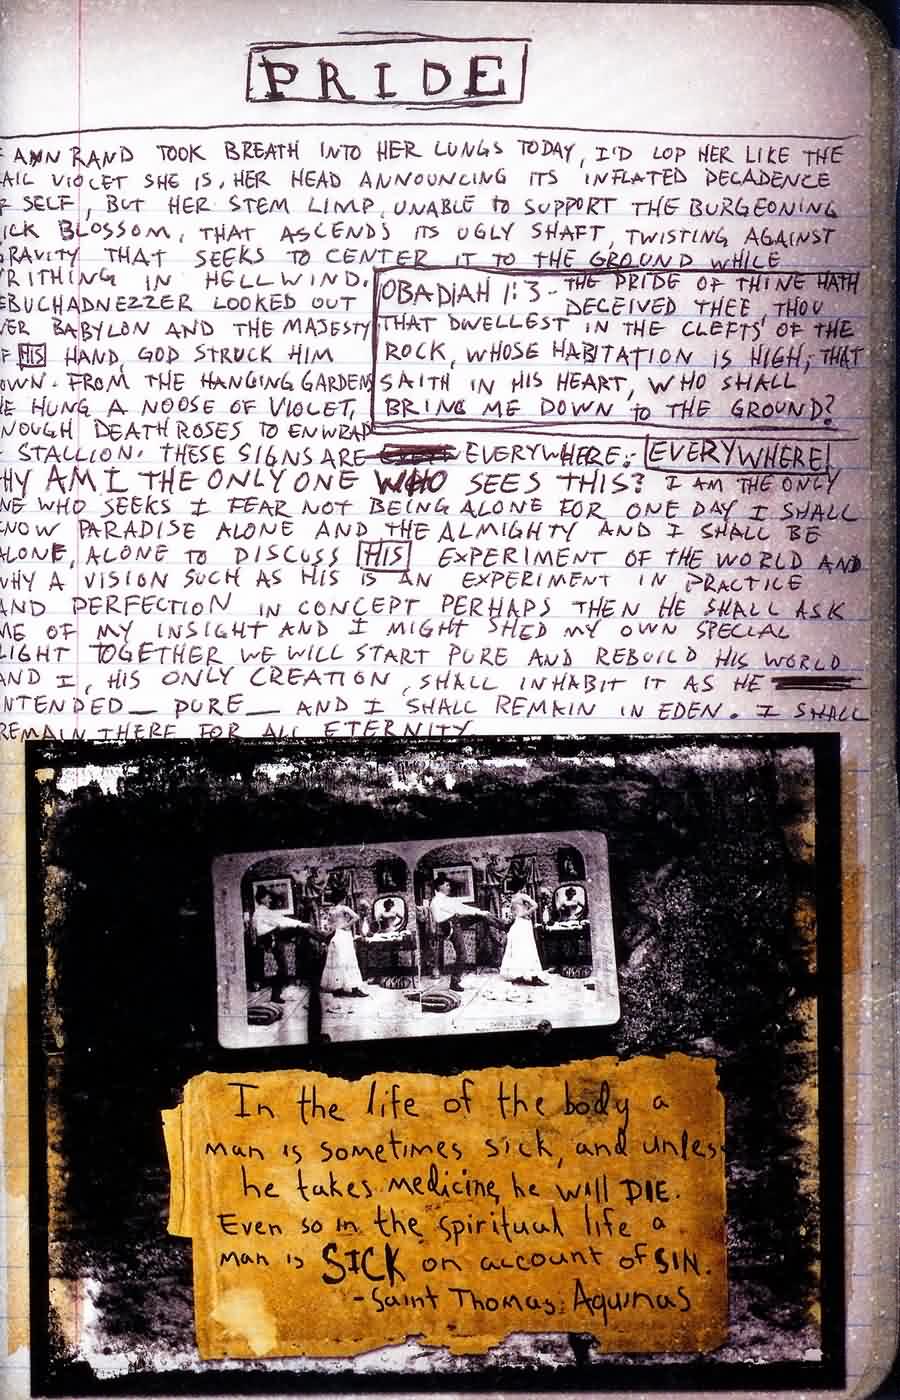 PRIDE
ANN RAND TOOK BREATH INTO HER LUNGS TODAY, I'D LOP HER LIKE THE
AIL VIOLET SHE IS, HER HEAD ANNOUNCING ITS INFLATED DECADENCE
F SELF, BUT HER STEM LIMP, UNABLE to SUPPORT THE BURGEONING
ICK BLOSSOM, THAT ASCENDS ITS UGLY SHAFT, TWISTING AGAINST
GRAVITY THAT SEEKS TO CENTER IT TO THE GROUND WHILE
RITHING IN HELLWIND.
EBUCHADNEZZER LOOKED OUT
VER BABYLON AND THE MAJESTY
F HIS HAND, GOD STRUCK HIM
OWN. FROM THE HANGING GARDENS
HE HUNG A NOOSE OF VIOLET,
NOUGH DEATH ROSES TO ENWRAP
OBADIAH 1:3 - THE PRIDE OF THINE HATH
DECEIVED THEE, THOU
THAT DWELLEST IN THE CLEFTS OF THE
ROCK, WHOSE HABITATION IS HIGH; THAT
SAITH IN HIS HEART, WHO SHALL
BRING ME DOWN to THE GROUND?
STALLION. THESE SIGNS ARE EVERYWHERE: EVERYWHERE!
HY AM I THE ONLY ONE WHO SEES THIS? I AM THE ONLY
NE WHO SEEKS I FEAR NOT BEING ALONE FOR ONE DAY I SHALL
KNOW PARADISE ALONE AND THE ALMIGHTY AND I SHALL BE
ALONE, ALONE to DISCUSS HIS EXPERIMENT OF THE WORLD AND
WHY A VISION SUCH AS HIS IS AN EXPERIMENT IN PRACTICE
AND PERFECTION IN CONCEPT PERHAPS THEN HE SHALL ASK
ME OF MY INSIGHT AND I MIGHT SHED MY OWN SPECIAL
LIGHT TOGETHER WE WILL START PURE AND REBUILD HIS WORLD
AND I, HIS ONLY CREATION, SHALL INHABIT IT AS HE
NTENDED — PURE — AND I SHALL REMAIN IN EDEN. I SHALL
REMAIN THERE FOR ALL ETERNITY
In the life of the body a
man is sometimes sick, and unles
he takes medicine, he will DIE.
Even so in the spiritual life a
man is SICK on account of SIN.
-Saint Thomas Aquinas